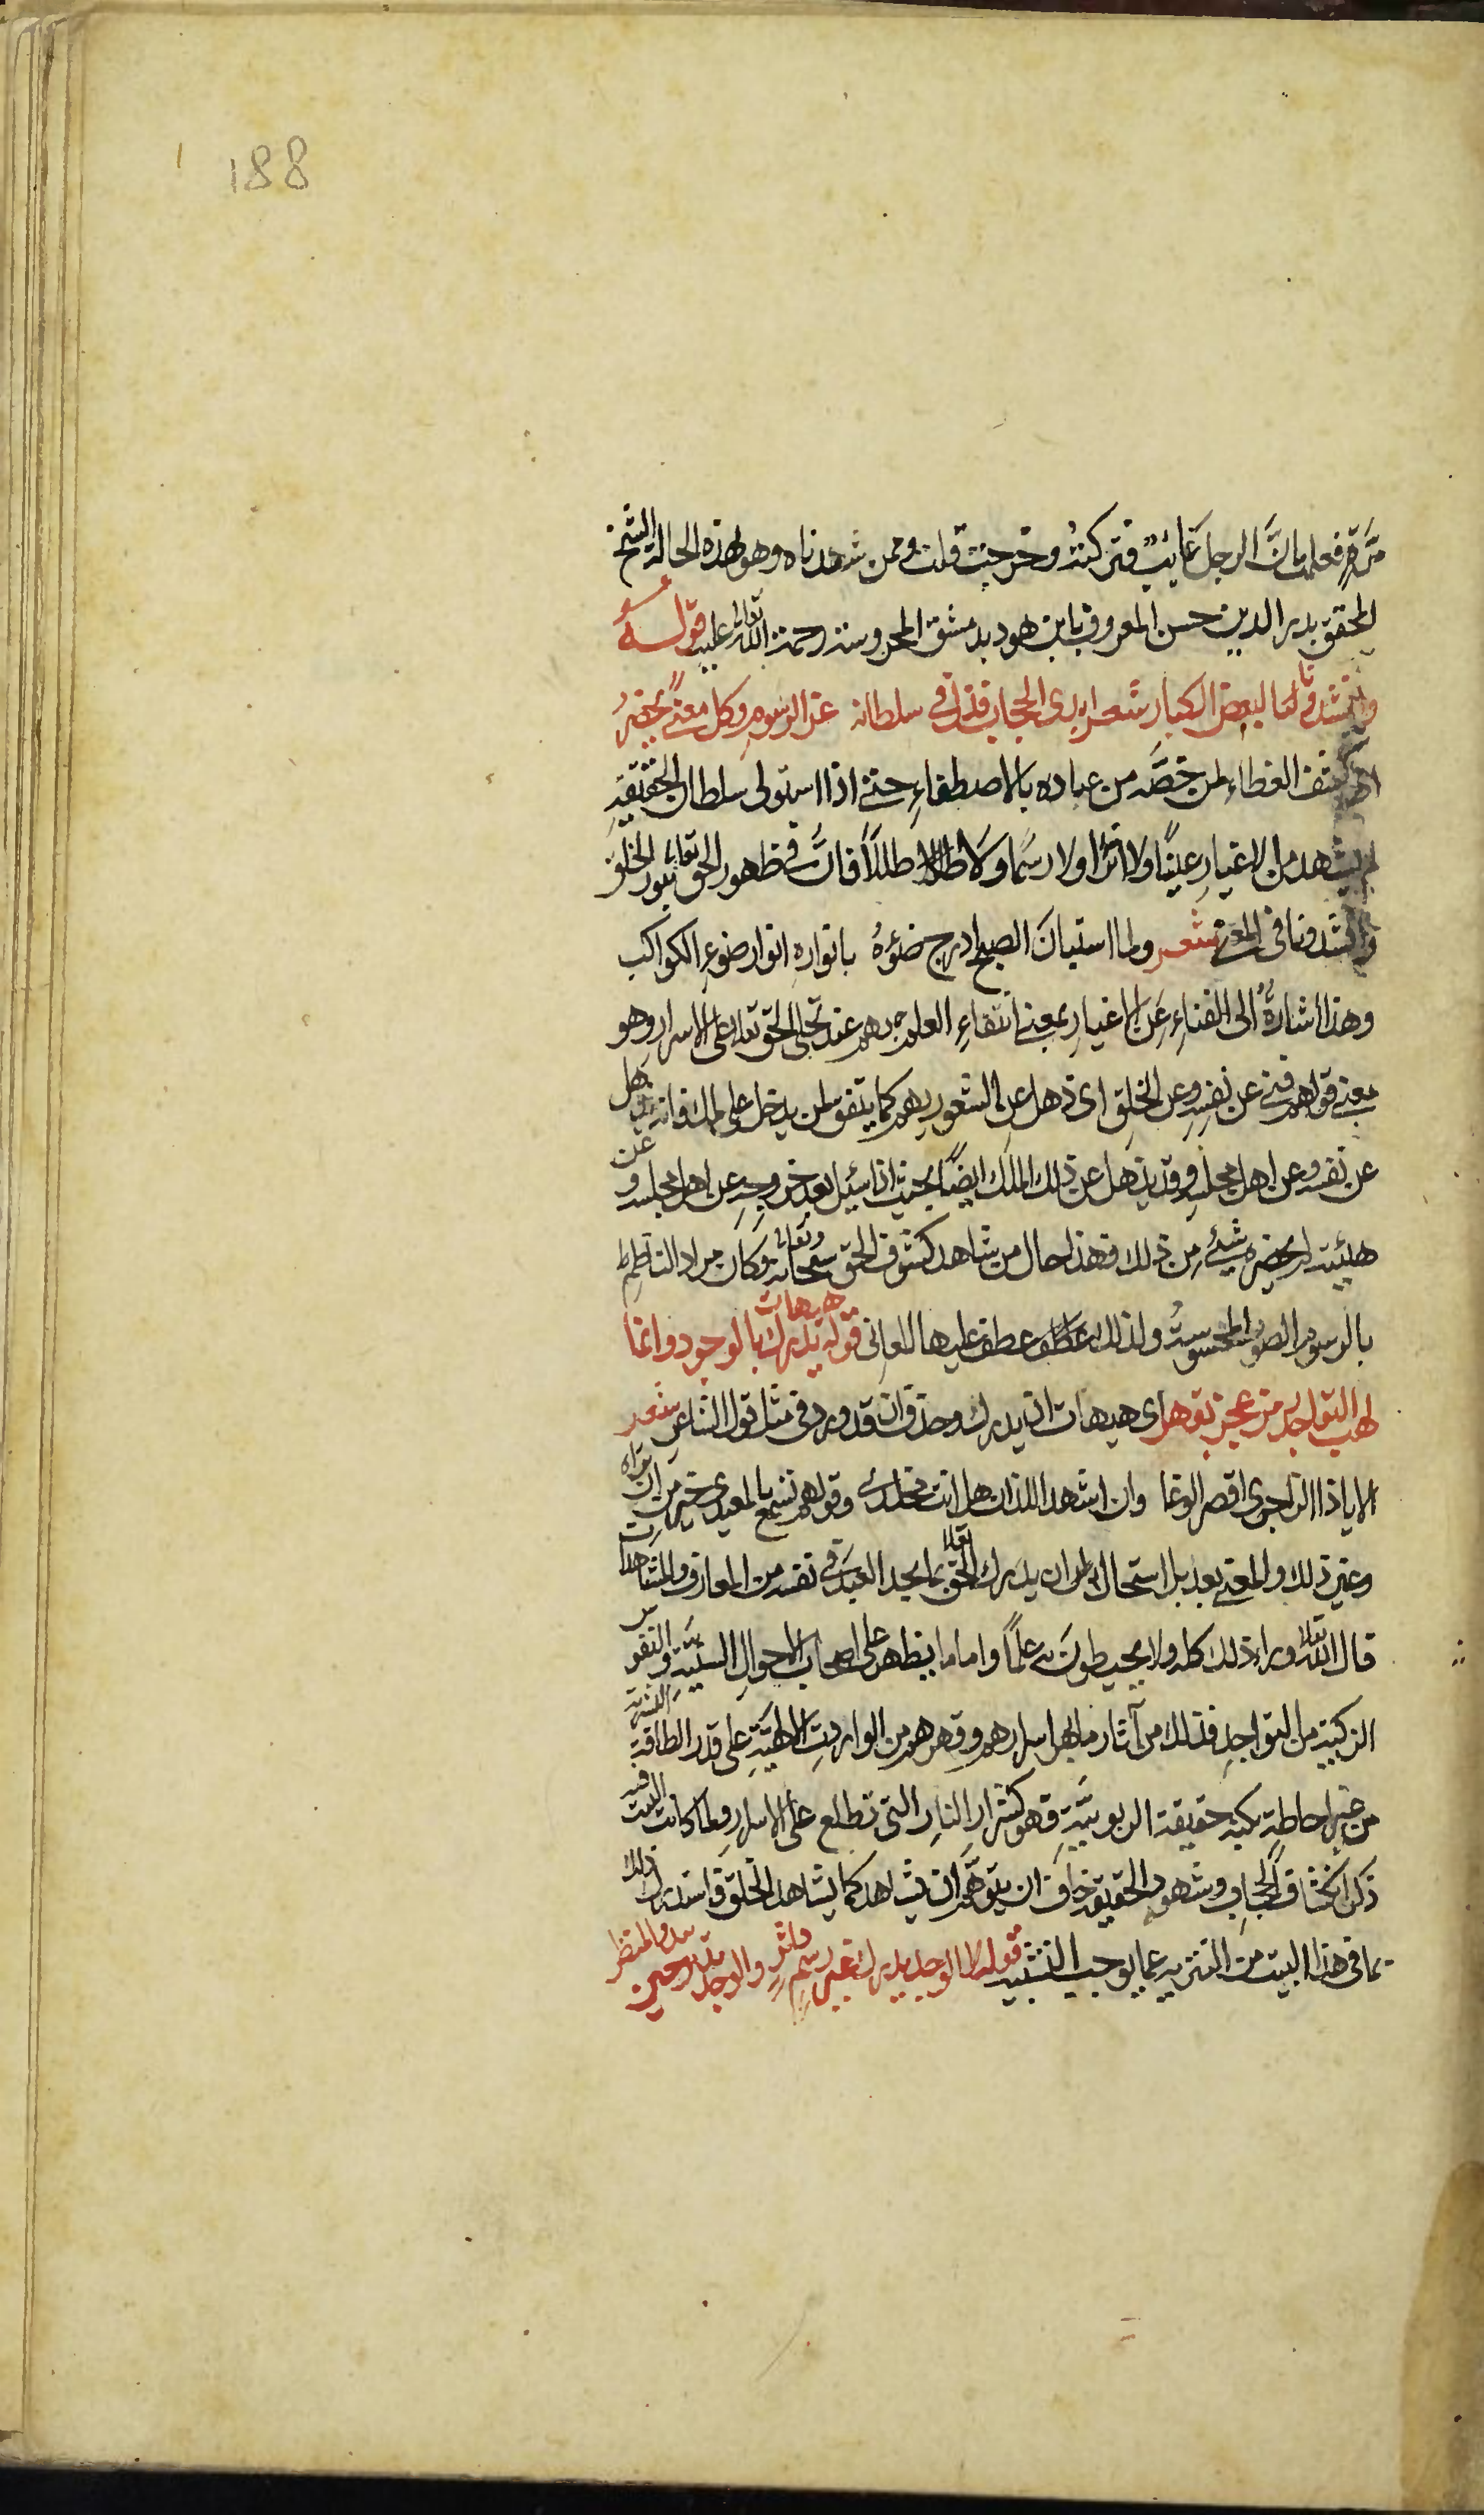 188
مرة فعلمت بان الرجل غايب فتركته وخرجت قلت وممن شهدناه وهو بهذه الحالة الشيخ
المحقق بدر الدين حسن المعروف بابن هود بدمشق المحروسة رحمة الله تعالى عليه قوله
وانشدونا لبعض الكبار شعر ابدى الحجاب فذل في سلطانه عز الرسوم وكل معنى يحضر
كشف الغطاء لمن خصه من عباده بالاصطفاء حتى اذا استولى سلطان الحقيقة
لم يشهد من الاغيار عينا ولا اثرا ولا رسما ولا طللا فان في ظهور الحق تعالى الخلق
وانشدونا في المعنى شعر ولما استبان الصبح ادرج ضوءه بانواره انوار ضوء الكواكب
وهذا اشارة الى الفناء عن الاغيار بمعنى انتفاء العلم بهم عند تجلى الحق تعالى على الاسرار وهو
معنى قولهم فنى عن نفسه وعن الخلق اى ذهل عن الشعور بهم كما يتفق لمن يدخل على ملك فانه يذهل
عن نفسه وعن اهل مجلسه وقد يذهل عن ذلك الملك ايضا بحيث اذا سئل بعد خروجه عن اهل مجلسه وعن
هيئته لم يخبر بشئ من ذلك فهذا حال من شاهد كشوف الحق سبحانه وتعالى وكان مراد الناظم
بالرسوم الصور المحسوسة ولذلك عطف عليها المعانى قوله هيهات يدرك بالوجود وانما
لهب التواجد رمز عجز يقهر اى هيهات ان يدرك وحذف ان قد ورد فى مثل قول الشاعر شعر
الا يا ذا الزاجرى احضر الوغا وان اشهد اللذات هل انت مخلدى وقولهم تسمع بالمعيدى خير من ان تراه
وغير ذلك والمعنى بعد بل استحال لمن ان يدرك الحق تعالى بما يجد العبد فى نفسه من المعارف والمشاهدات
قال الله تعالى وراء ذلك كله ولا يحيطون به علما واما ما يظهر على اصحاب الاحوال السنية والنفوس
الزكية من التواجد فذلك من آثار ما بهر اسرارهم وقهرهم من الواردات الالهية على قدر الطاقة البشرية
من غير احاطة بكنه حقيقة الربوبية فهو كشرار النار التى تطلع على الاسرار ولما كانت البيت فيه
ذكر انكشاف الحجاب وشهود الحقيقة خاف ان يتوهم ان يشاهد كما يشاهد الخلق فاستدرك ذلك
بما فى هذا البيت من التنزيه عما يوجب التشبيه قوله لا الوجد يدرك غير رسم داثر والوجد يدثر حين يبدو المنظر